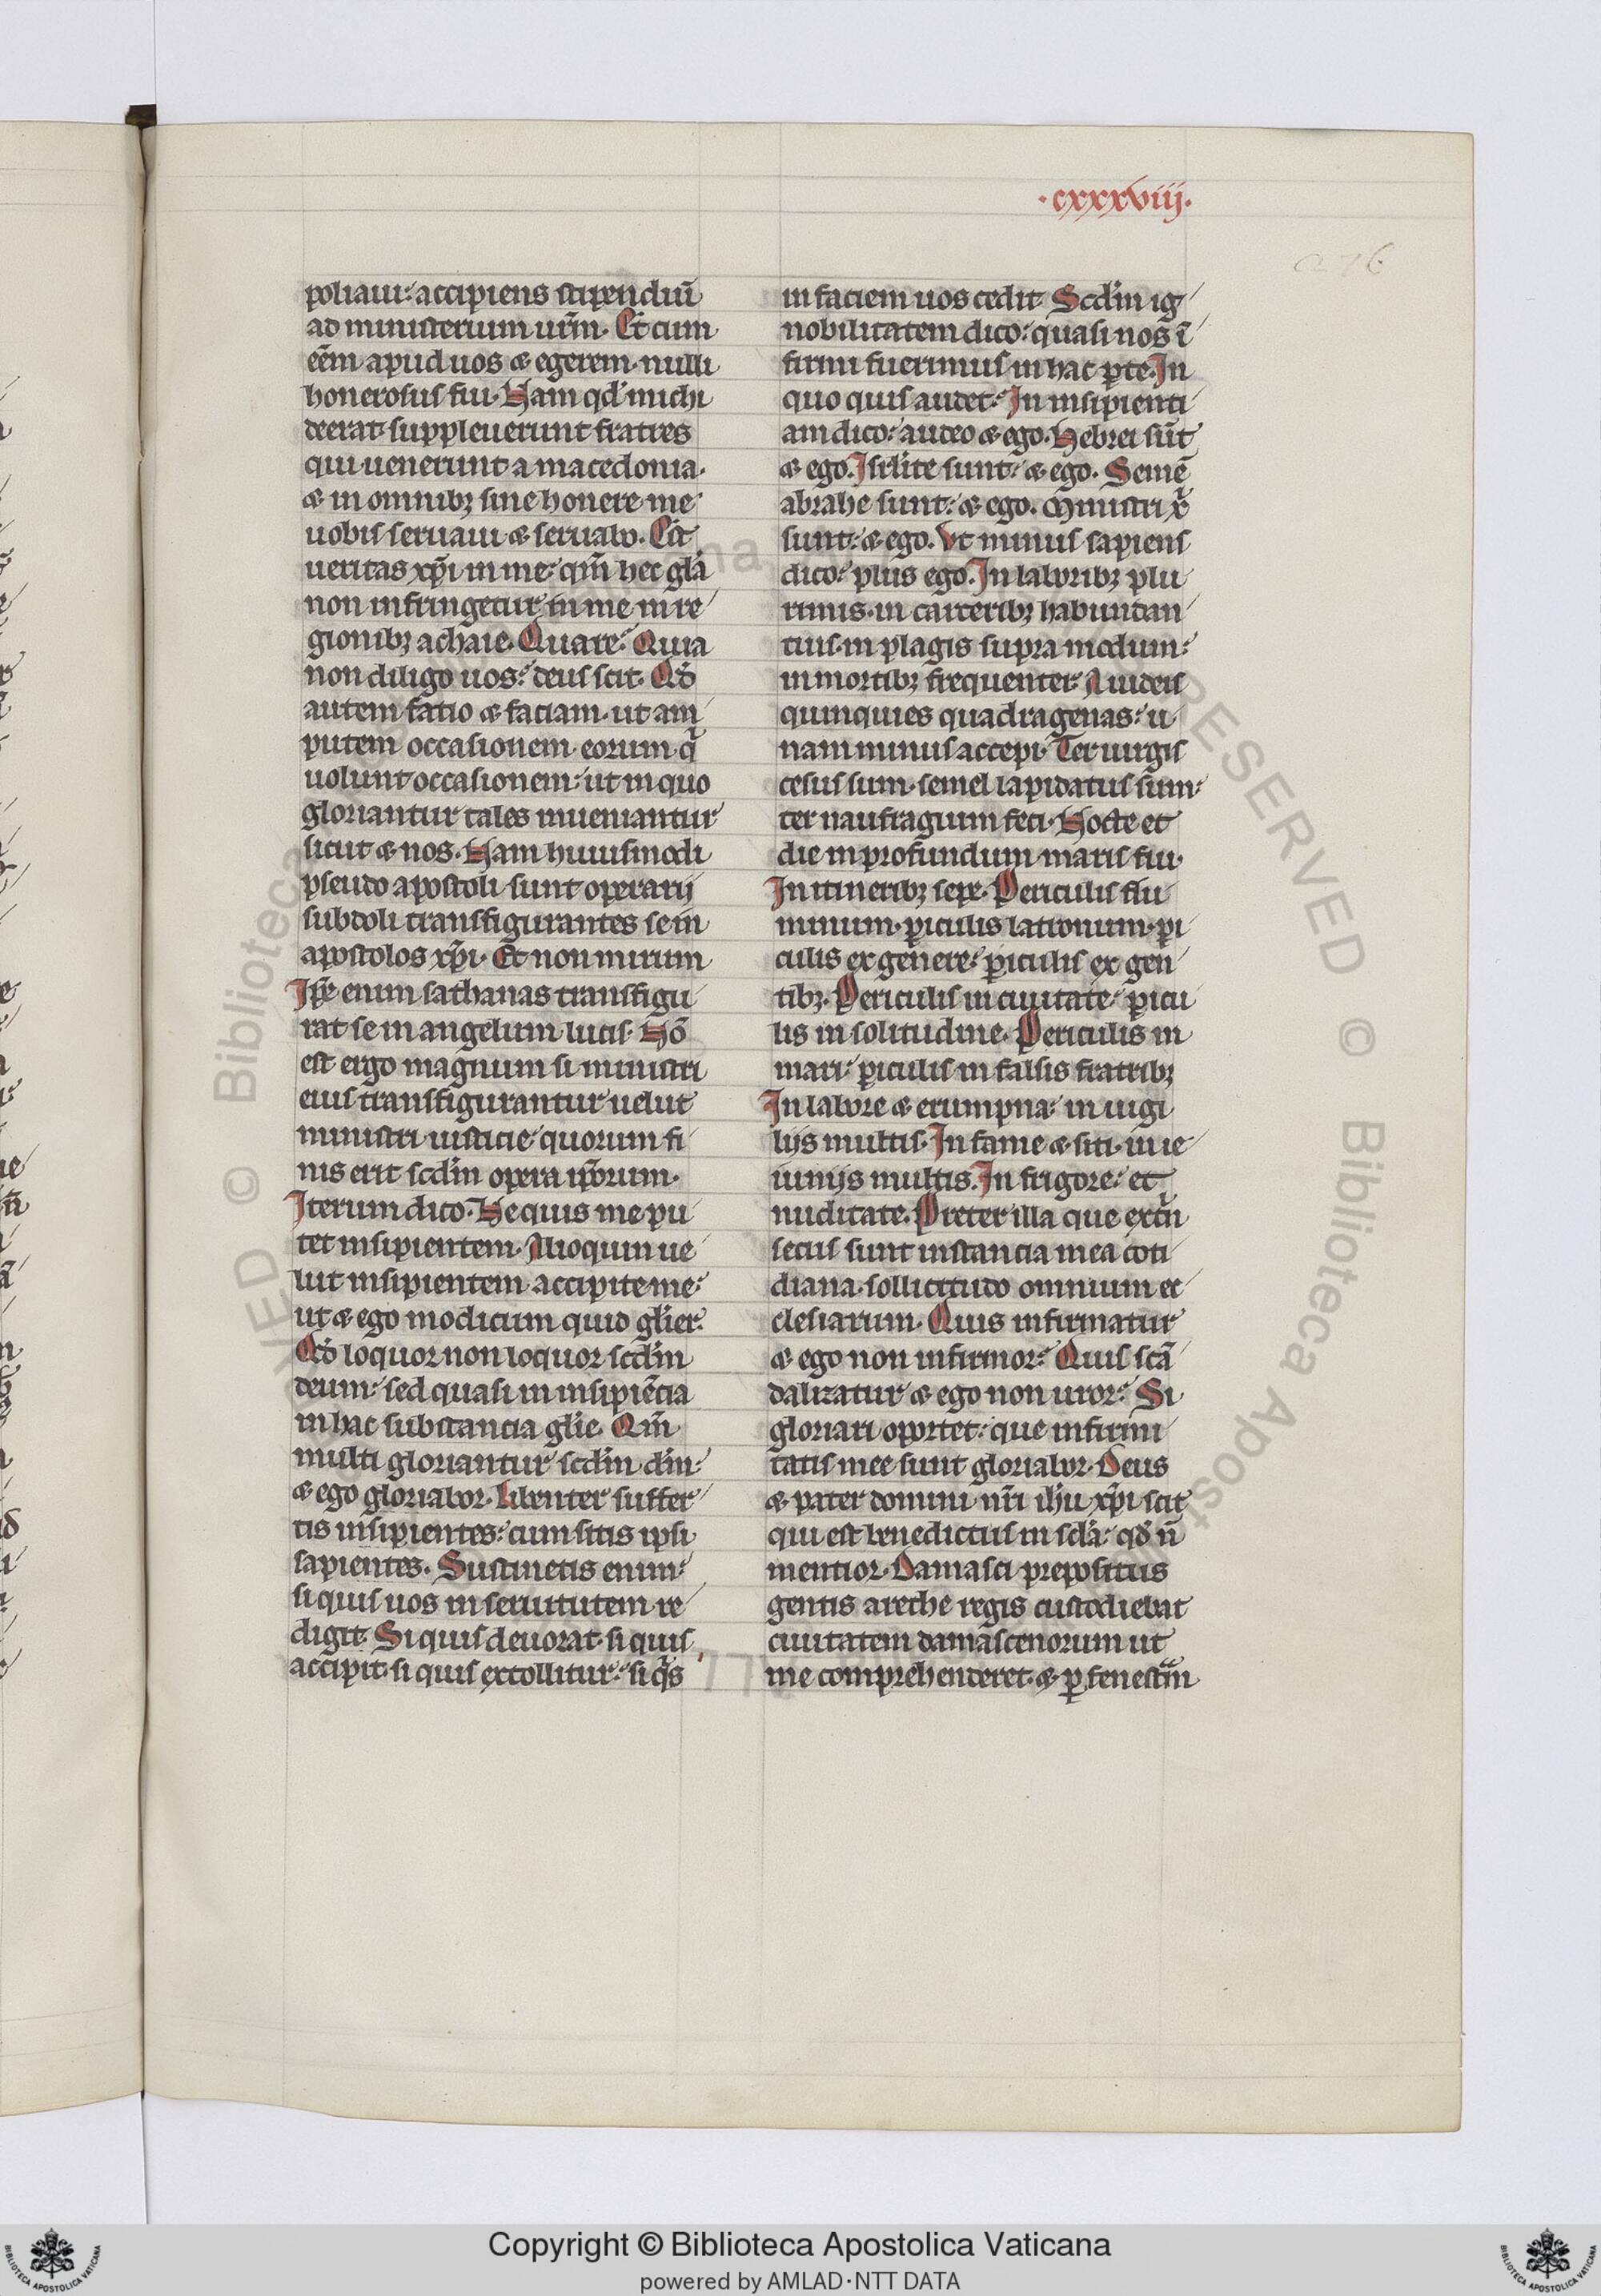 ·cxxxviij·
276
poliaui: accipiens stipendiū
ad ministerium ur̄m. Et cum
eēm apud uos & egerem. nulli
honerosus fui. Nam qd' michi
deerat suppleuerunt fratres
qui uenerunt a macedonia.
& in omnibꝫ sine honere me
uobis seruaui & seruabo. Est
ueritas xp̄i in me: qm̄ hec gl̄a
non infringetur in me in re
gionibꝫ achaie. Quare: Quia
non diligo uos: deus scit. Qd'
autem fatio & faciam. ut am
putem occasionem eorum q̄
uolunt occasionem: ut in quo
gloriantur tales inueniantur
sicut & nos. Nam huiusmodi
pseudo apostoli sunt operarij
subdoli transfigurantes se in
apostolos xp̄i. Et non mirum
Ip̄e enim sathanas transfigu
rat se in angelum lucis. Nō
est ergo magnum si ministri
eius transfigurantur uelut
ministri iusticie: quorum fi
nis erit scd'm opera ip̄orum.
Iterum dico. Ne quis me pu
tet insipientem. Alioquin ue
lut insipientem accipite me:
ut & ego modicum quid gl̄ier.
Qd' loquor non loquor scd'm
deum: sed quasi in insipiētia
in hac substancia gl̄ie. Qm̄
multi gloriantur scd'm d̄m:
& ego gloriabor. Libenter suffer
tis insipientes: cum sitis ipsi
sapientes. Sustinetis enim:
si quis uos in seruitutem re
digit. Si quis deuorat. si quis
accipit. si quis extollitur: si q̄s
in faciem uos cedit. Scd'm ig
nobilitatem dico: quasi nos ī
firmi fuerimus in hac ꝑte. In
quo quis audet: In insipienti
am dico: audeo & ego. Hebrei sūt
& ego. Isrl'ite sunt: & ego. Semē
abrahe sunt: & ego. Ministri x̄
sunt: & ego. Vt minus sapiens
dico: plus ego. In laboribꝫ plu
rimis. in carceribꝫ habundan
tius. in plagis supra modum:
in mortibꝫ frequenter. A iudeis
quinquies quadragenas: u
nam minus accepi. Ter uirgis
cesus sum. semel lapidatus sum:
ter naufragium feci. Nocte et
die in profundum maris fui.
In itineribꝫ sepe. Periculis flu
minum. ꝑiculis latronum. ꝑi
culis ex genere: ꝑiculis ex gen
tibꝫ. Periculis in ciuitate: ꝑicu
lis in solitudine. Periculis in
mari: ꝑiculis in falsis fratribꝫ
In labore & erumpna: in uigi
lijs multis. In fame & siti. in ie
iunijs multis. In frigore: et
nuditate. Preter illa que extn̄
secus sunt instancia mea coti
diana. sollicitudo omnium ec
clesiarum. Quis infirmatur
& ego non infirmor: Quis scā
dalizatur & ego non uror: Si
gloriari oportet: que infirmi
tatis mee sunt gloriabor. Deus
& pater domini nr̄i ih̄u xp̄i scit
qui est benedictus in scl̄a: qd' n̄
mentior. Damasci prepositus
gentis arethe regis custodiebat
ciuitatem damascenorum ut
me comprehenderet. & ꝑ fenestrm̄
Copyright © Biblioteca Apostolica Vaticana
powered by AMLAD·NTT DATA